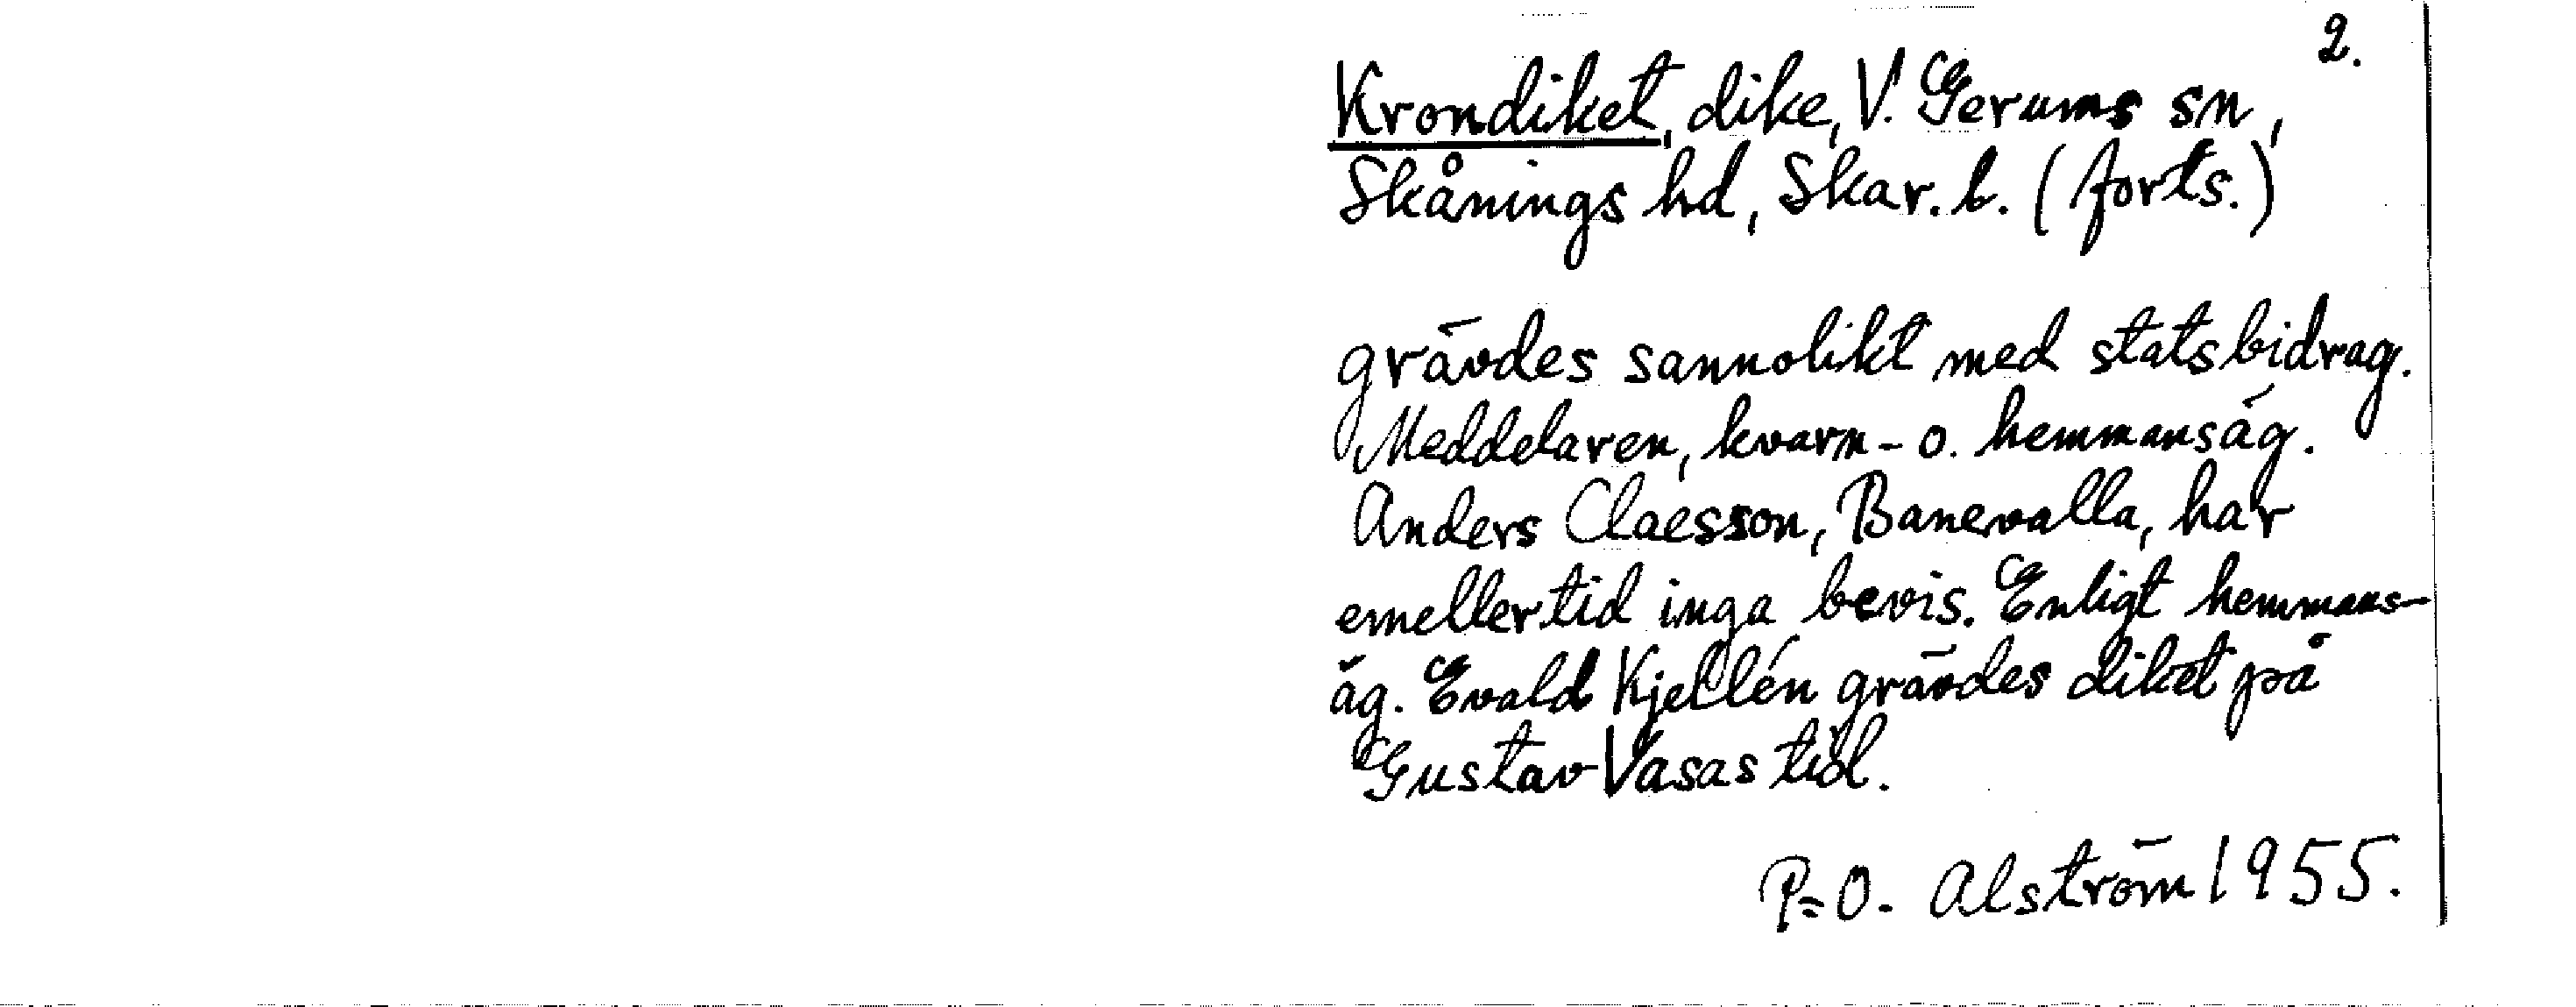 2.
Krondiket, dike, V. Gerums sn,
Skånings hd, Skar. l. (forts.)
grävdes sannolikt med statsbidrag.
Meddelaren, kvarn- o. hemmansäg.
Anders Claesson, Banevalla, har
emellertid inga bevis. Enligt hemmans-
äg. Evald Kjellén grävdes diket på
Gustav Vasas tid.
P=O. Alström 1955.